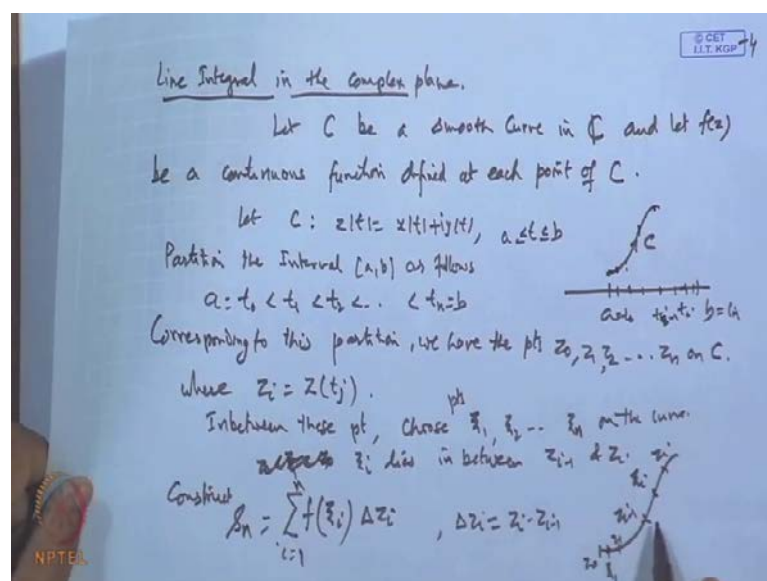 © CET
I.I.T. KGP
Line Integral in the complex plane.
Let C be a smooth curve in ℂ and let f(z)
be a continuous function defined at each point of C.
Let C: z(t) = x(t)+iy(t), a≤t≤b
C
Partition the Interval [a,b] as follows
a=t₀ < t₁ < t₂ < .. < tₙ=b
Corresponding to this partition, we have the pts z₀, z₁, z₂ ... zₙ on C.
where zᵢ = z(tⱼ).
Inbetween these pt, choose pts ξ₁, ξ₂ .. ξₙ on the curve.
ξᵢ lies in between zᵢ₋₁ & zᵢ.
Construct Sₙ = ∑ᵢ₌₁ⁿ f(ξᵢ) Δzᵢ , Δzᵢ = zᵢ - zᵢ₋₁
zᵢ
ξᵢ
zᵢ₋₁
z₀ z₁
ξ₁
NPTEL